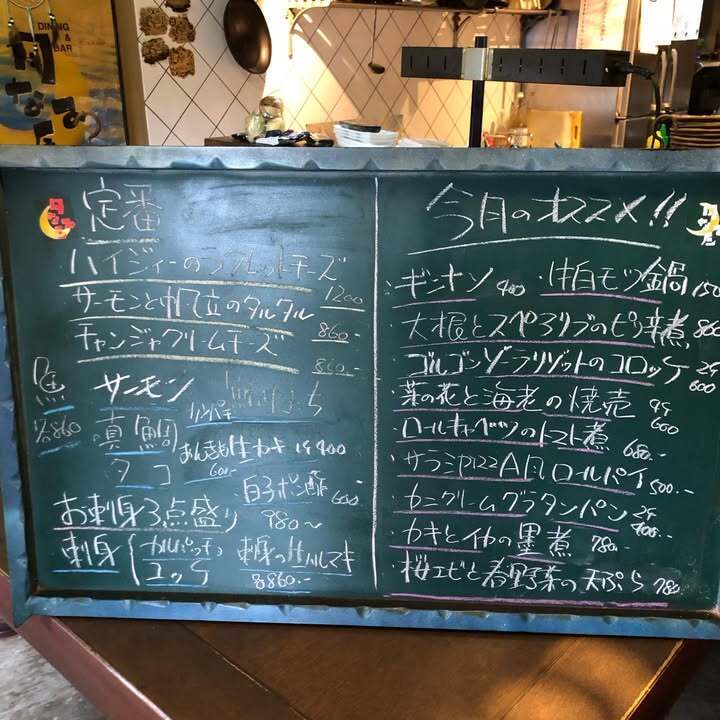 DINING
&
BAR
定番
ハイジィーのラクレットチーズ
1200
サーモンと帆立のタルタル
860.-
チャンジャクリームチーズ
860.-
魚 サーモン
カンパチ
真鯛
各860
あんきも
600.-
生カキ 1ヶ400
タコ
白子ポン酢 600
お刺身3点盛り 980〜
刺身 カルパッチョ
ユッケ
各860.-
今月のオススメ!!
・ギンナン 400
・牛白モツ鍋 150
・大根とスペアリブのピリ辛煮 860
・ゴルゴンゾーラリゾットのコロッケ 2ヶ 600
・菜の花と海老の焼売 4ヶ 600
・ロールキャベツのトマト煮 680.-
・サラミpizzA風ロールパイ 500.-
・カニクリームグラタンパン 2ヶ 400.-
・カキとイカの墨煮 780.-
・桜エビと春野菜の天ぷら 780.-